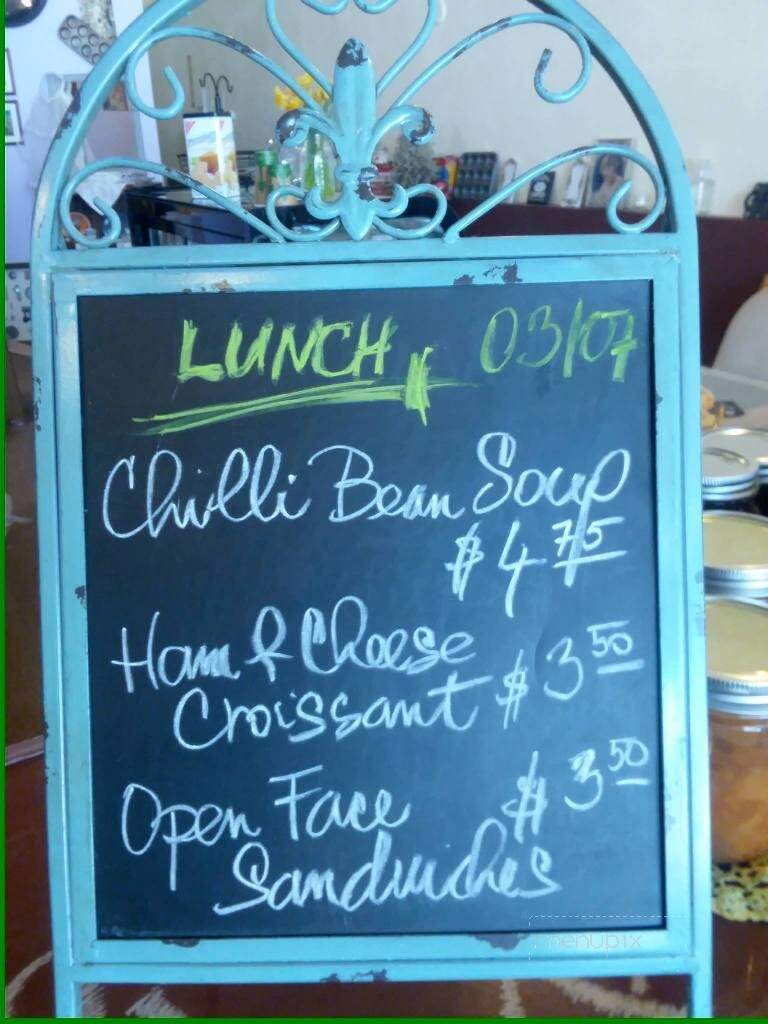 LUNCH 03/07
Chilli Bean Soup
$4.75
Ham & Cheese
Croissant $3.50
Open Face $3.50
Sandwiches
menupix